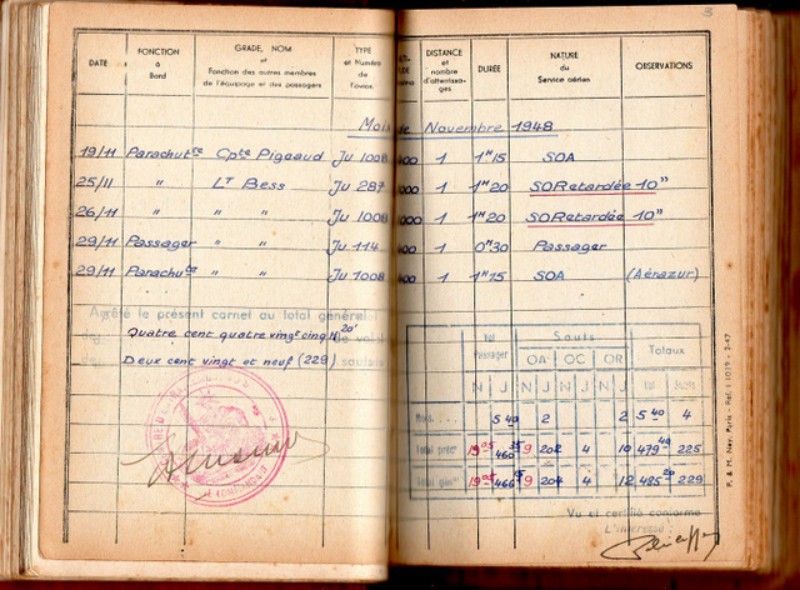 3
DATE
FONCTION à Bord
GRADE, NOM et Fonction des autres membres de l'équipage et des passagers
TYPE et Numéro de l'avion
DISTANCE et nombre d'atterrissages
DURÉE
NATURE du Service aérien
OBSERVATIONS
Mois de Novembre 1948
19/11 Parachutte Cpte Pigeaud Ju 1008 1 1H15 SOA
25/11 " LT Bess Ju 287 1 1H20 SORetardée 10"
26/11 " " " Ju 1008 1 1H20 SORetardée 10"
29/11 Passager " " Ju 114 1 0H30 Passager
29/11 Parachute " " Ju 1008 1 1H15 SOA (Aérazur)
le présent carnet au total général
Quatre cent quatre vingt cinq H 20' de vol
Deux cent vingt et neuf (229) sauts
LE COMMANDANT
Vol Passager Sauts Totaux
OA OC OR
N J N J N J N J Vol Sauts
Mois . . . 5 40 2 2 5 40 4
Total préct 19 05 460 35 9 202 4 10 479 40 225
Total génal 19 05 466 15 9 204 4 12 485 20 229
Vu et certifié conforme
L'intéressé :
P. & M. Ney, Paris - Réf. : 1019 - 3-47